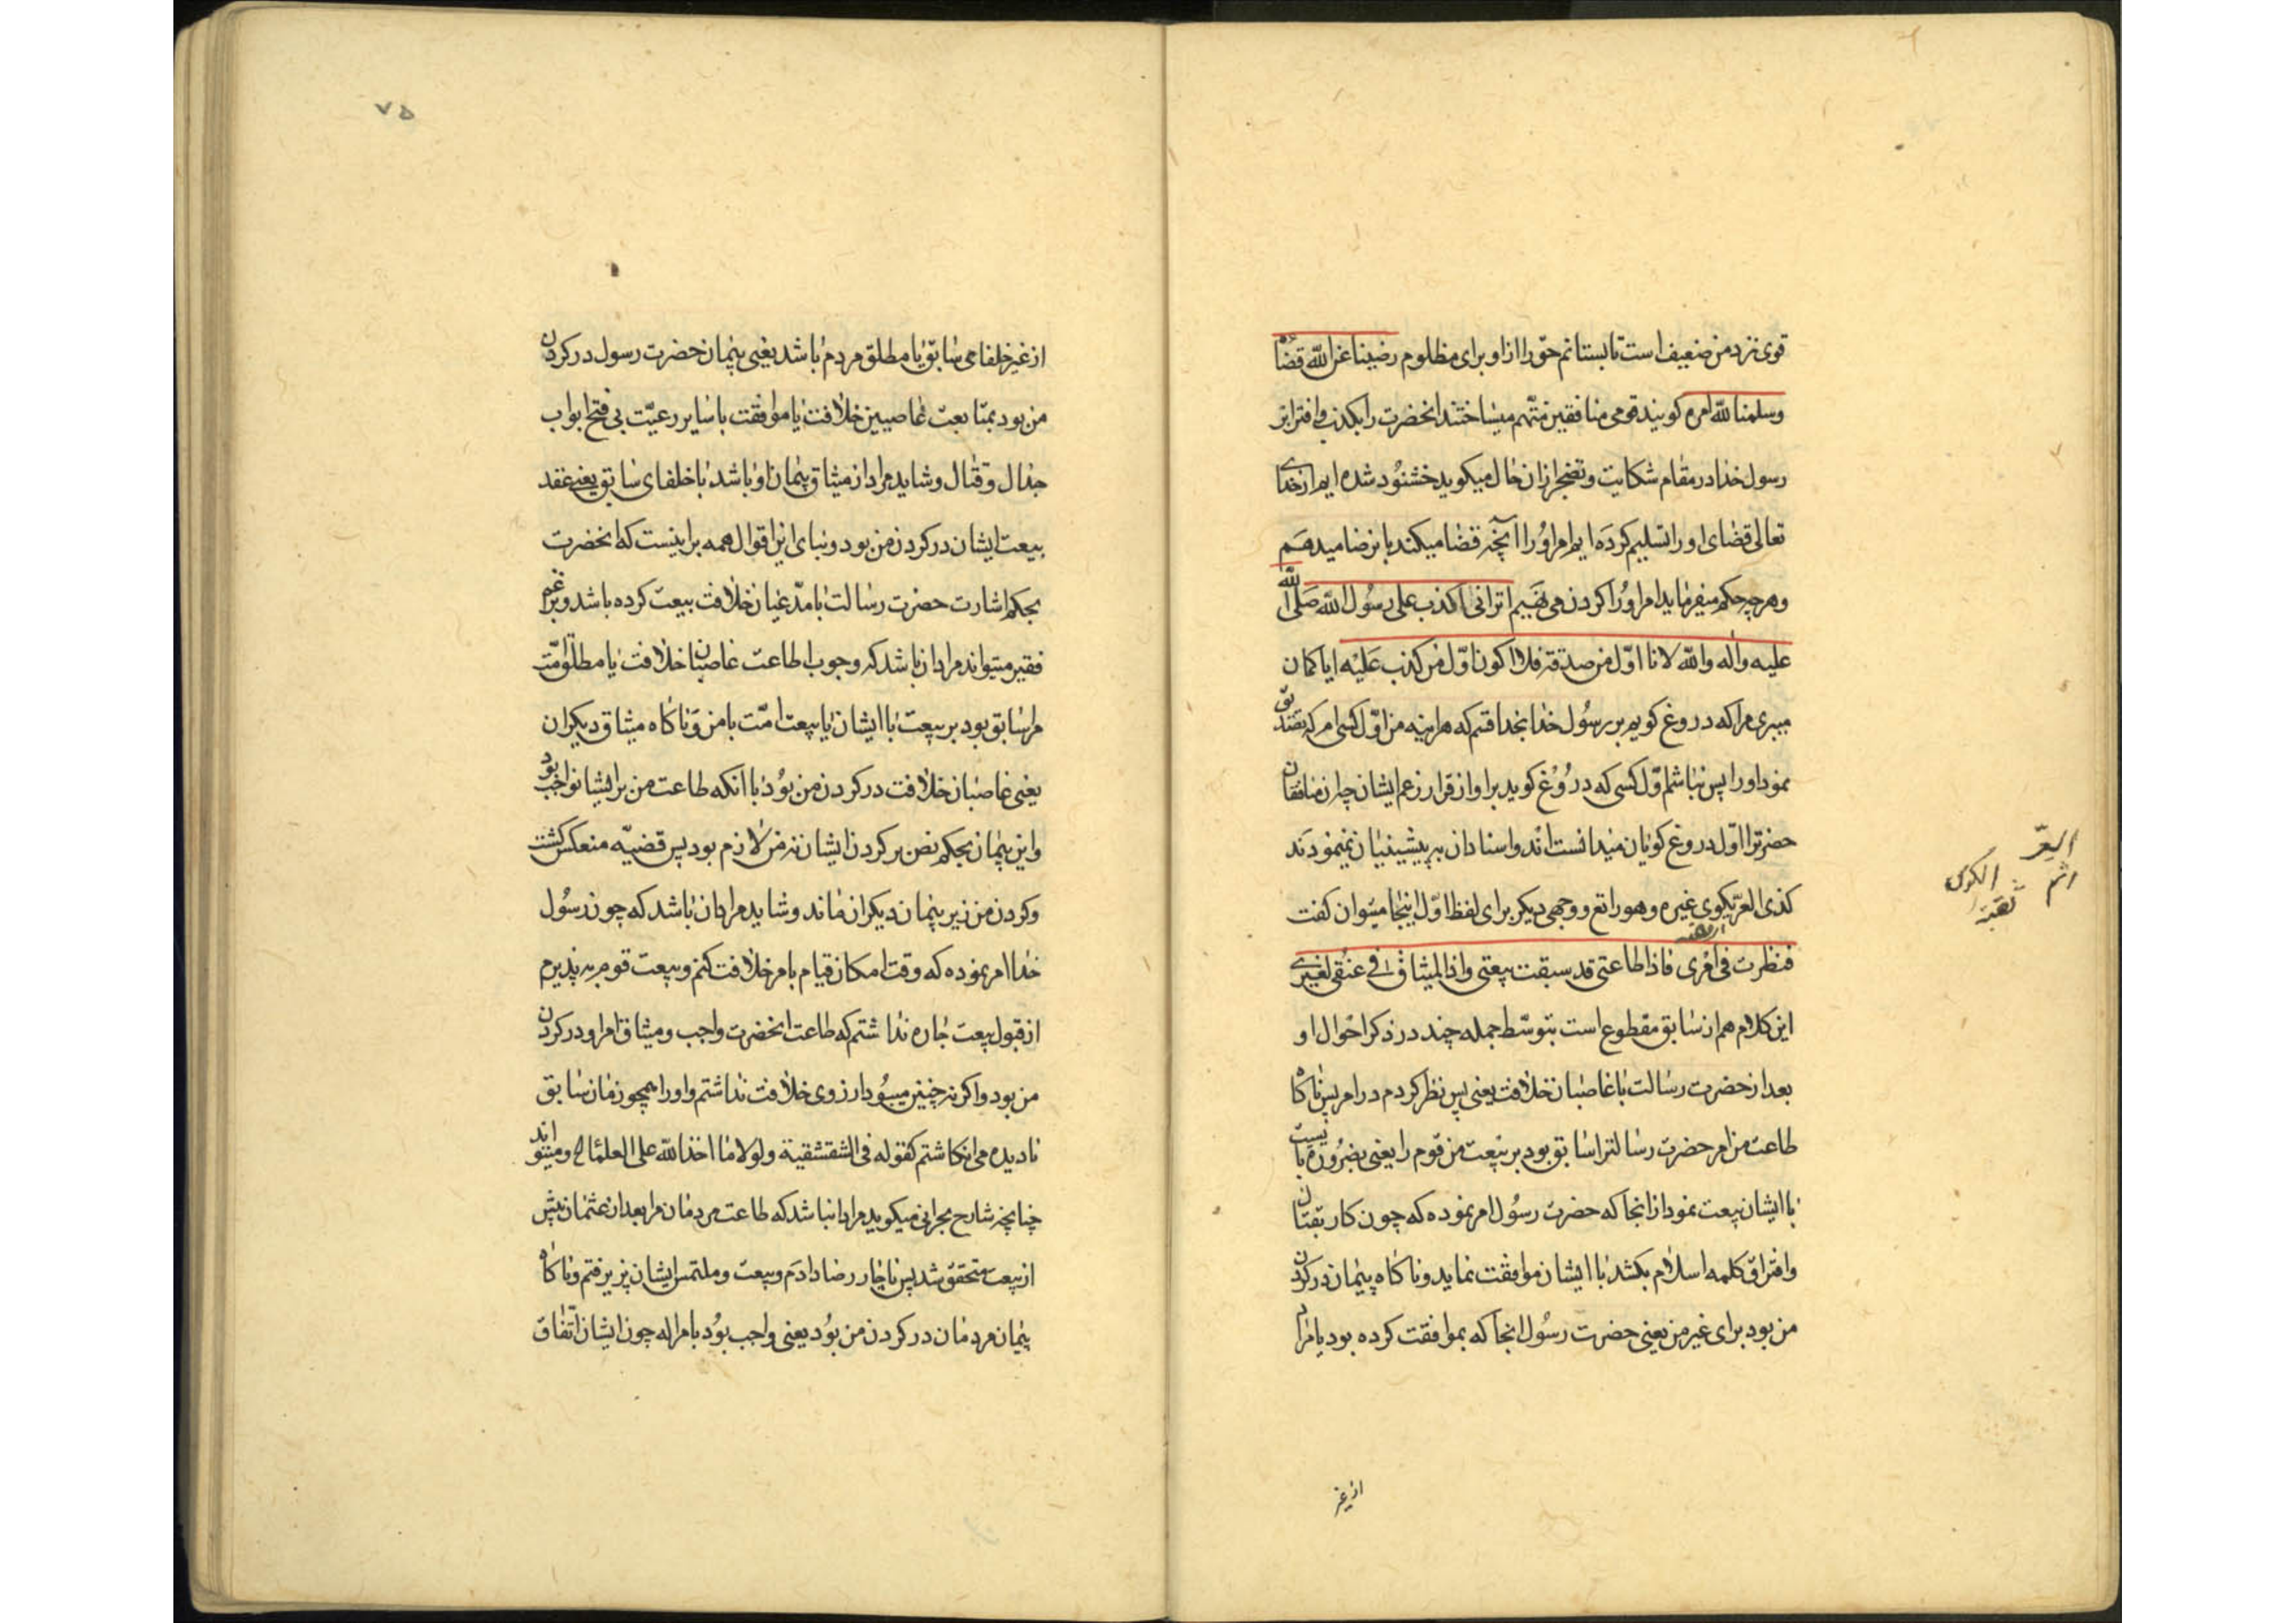 قوی نزد من ضعیف است تا بستانم حق را از او برای مظلوم رضینا عن الله قضاه
وسلمنا لله امره کویند قومی منافقین متهم میساختند انحضرت را بکذب و افترا بر
رسول خدا در مقام شکایت و تضجر ازان حال میکوید خشنود شده ایم از خدای
تعالی قضای او را و تسلیم کرده ایم امر او را انچه قضا میکند بان رضا میدهم
وهر چه حکم میفرماید امر او را کردن می نهیم اترانی اکذب علی رسول الله صلی الله
علیه واله والله لانا اول من صدقه فلا اکون اول من کذب علیه ایا کمان
میبری مرا که دروغ کویم بر رسول خدا بخدا قسم که هراینه من اول کسی ام که تصدیق
نمود او را پس نباشم اول کسی که دروغ کوید بر او از قرار زعم ایشان چه ان منافقان
حضرترا اول دروغ کویان میدانسته اند واسناد ان به پیشینیان نمینمودند
کذی العر یکوی غیره وهو راتع ووجهی دیکر برای لفظ اول اینجا میتوان کفت
فنظرت فی امری فاذا طاعتی قد سبقت بیعتی واذا المیثاق فی عنقی لغیری
این کلام هم از سابق مقطوع است بتوسط جمله چند در ذکر احوال او
بعد از حضرت رسالت با غاصبان خلافت یعنی پس نظر کردم در امر پس ناکاه
طاعت من امر حضرت رسالترا سابق بود بر بیعت من قوم را یعنی بضرورة بایست
با ایشان بیعت نمود از انجا که حضرت رسول امر نموده که چون کار بقتال
وافتراق کلمه اسلام بکشد با ایشان موافقت نماید وناکاه پیمان در کردن
من بود برای غیر من یعنی حضرت رسول انجا که بموافقت کرده بود یا مراد
از غیر
العر
اثم
الکوی
۷۵
از غیر خلفای سابق یا مطلق مردم باشد یعنی پیمان حضرت رسول در کردن
من بود بمتابعت غاصبین خلافت یا موافقت با سایر رعیت بی فتح ابواب
جدال و قتال وشاید مراد از میثاق پیمان او باشد با خلفای سابق یعنی عقد
بیعت ایشان در کردن من بود وبنای این اقوال همه بر اینست که انحضرت
بحکم اشارت حضرت رسالت با مدعیان خلافت بیعت کرده باشد وبزعم
فقیر میتواند مراد ان باشد که وجوب اطاعت غاصبان خلافت یا مطلق امت
مرا سابق بود بر بیعت با ایشان یا بیعت امت با من وناکاه میثاق دیکران
یعنی غاصبان خلافت در کردن من بود با انکه طاعت من بر ایشان واجب بود
واین پیمان بحکم نص بر کردن ایشان نه من لازم بود پس قضیه منعکس کشت
وکردن من زیر پیمان دیکران ماند وشاید مراد ان باشد که چون رسول
خدا امر نموده که وقت امکان قیام بامر خلافت کنم وبیعت قوم بپذیرم
از قبول بیعت چاره نداشتم که طاعت انحضرت واجب ومیثاق امر او در کردن
من بود واکر نه چنین میبود ارزوی خلافت نداشتم واو را همچو زمان سابق
نادیده می انکاشتم کقوله فی الشقشقیة ولولا ما اخذ الله علی العلماء الخ ومیتواند
چنانچه شارح بحرانی میکوید مراد انباشد که طاعت مردمان مرا بعد از عثمان پیش
از بیعت متحقق شد پس ناچار رضا دادم وبیعت وملتمس ایشان پذیرفتم وناکاه
پیمان مردمان در کردن من بود یعنی واجب بود بامر اله چون ایشان اتفاق